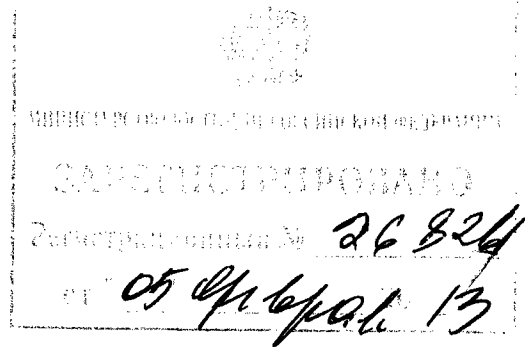 МИНИСТЕРСТВО ЮСТИЦИИ РОССИЙСКОЙ ФЕДЕРАЦИИ
ЗАРЕГИСТРИРОВАНО
Регистрационный №
от "05 февраля 13